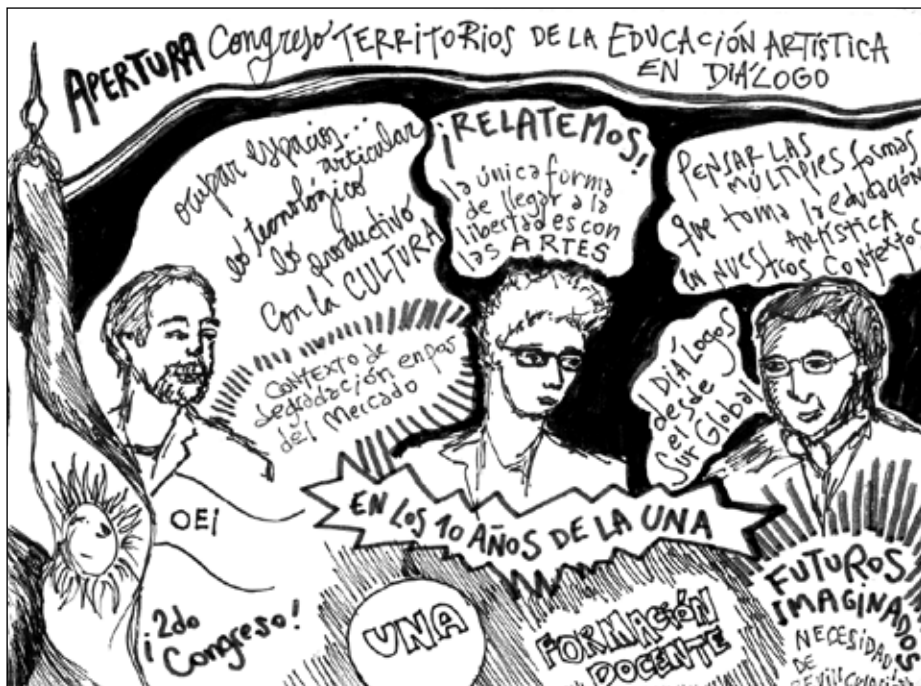 APERTURA Congreso TERRITORIOS DE LA EDUCACIÓN ARTÍSTICA
EN DIÁLOGO
ocupar espacios...
articular
lo tecnológico
lo productivo
con la CULTURA
CONTEXTO de
degradación en pos
del Mercado
¡RELATEMOS!
la única forma
de llegar a la
libertad es con
las ARTES
PENSAR LAS
MÚLTIPLES formas
que toma la educación
ARTÍSTICA
en nuestros contextos
DIÁLOGOS
desde
el
Sur Global
EN LOS 10 AÑOS DE LA UNA
OEi
¡2do
Congreso!
UNA
FORMACIÓN
DOCENTE
FUTUROS
IMAGINADOS
NECESIDAD
DE